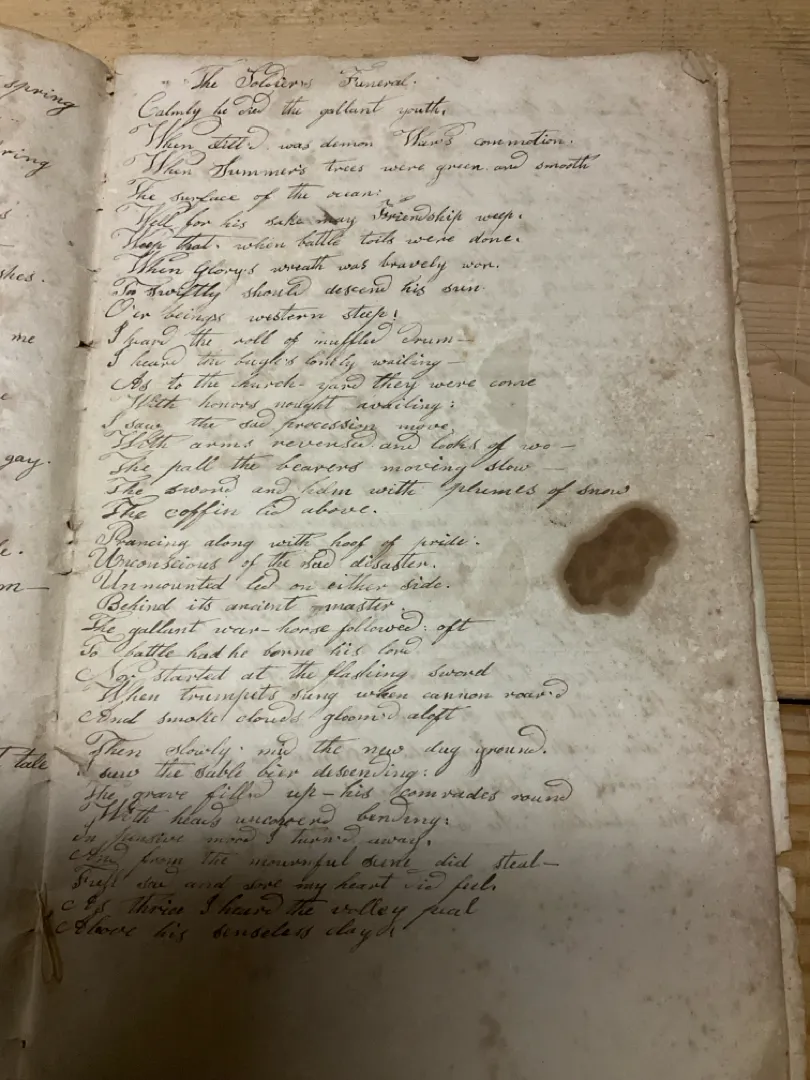 spring
ring
s
shes.
me
e
gay.
e.
m—
t tale
The Soldier's Funeral.
Calmly he died the gallant youth,
When still'd was demon War's commotion.
When Summer's trees were green and smooth
The surface of the ocean:
Well for his sake may Friendship weep.
Weep that, when battle toils were done.
When Glory's wreath was bravely won.
To swiftly should descend his sun
O'er being's western steep!
I heard the roll of muffled drum—
I heard the bugle's lonely wailing—
As to the church-yard they were come
With honors nought availing:
I saw the sad procession move,
With arms reversed and looks of wo—
The pall the bearers moving slow—
The sword and helm with plumes of snow
The coffin lid above.
Prancing along with hoof of pride.
Unconscious of the sad disaster.
Unmounted led on either side.
Behind its ancient master.
The gallant war-horse followed: oft
To battle had he borne his lord
Nor started at the flashing sword
When trumpets sung when cannon roar'd
And smoke clouds gloom'd aloft
Then slowly mid the new dug ground.
I saw the sable bier descending:
The grave fill'd up—his comrades round
With heads uncover'd bending:
In pensive mood I turn'd away.
And from the mournful scene did steal—
Full sad and sore my heart did feel.
As thrice I heard the volley peal
Above his senseless clay.